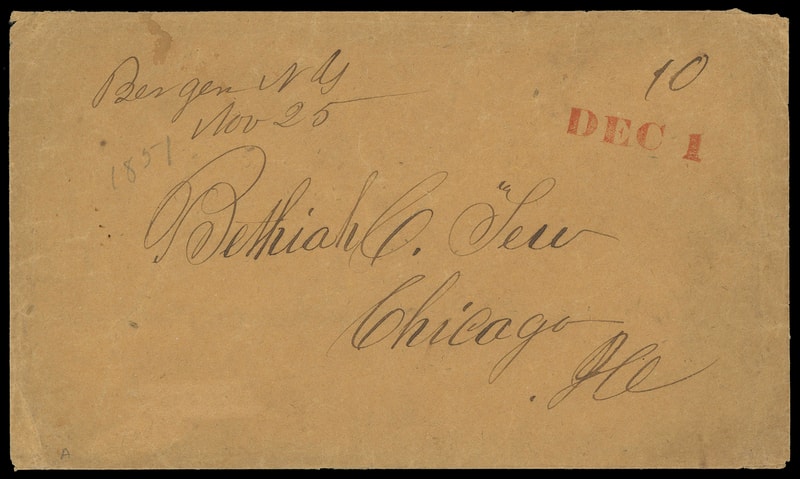 Bergen NY
Nov 25
10
DEC 1
1851
Bethiah C. Tew
Chicago
Ill
A